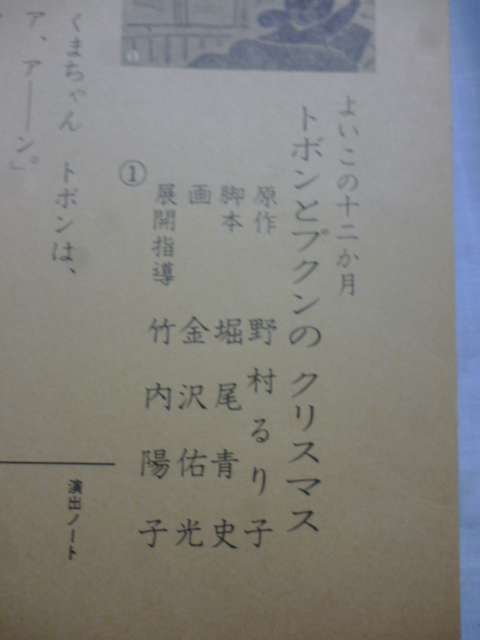 よいこの十二か月
トボンとプクンの クリスマス
原作 野村るり子
脚本 堀尾青史
画 金沢佑光
展開指導 竹内陽子
①
くまちゃん トボンは、
ア、アーン。」
演出ノート